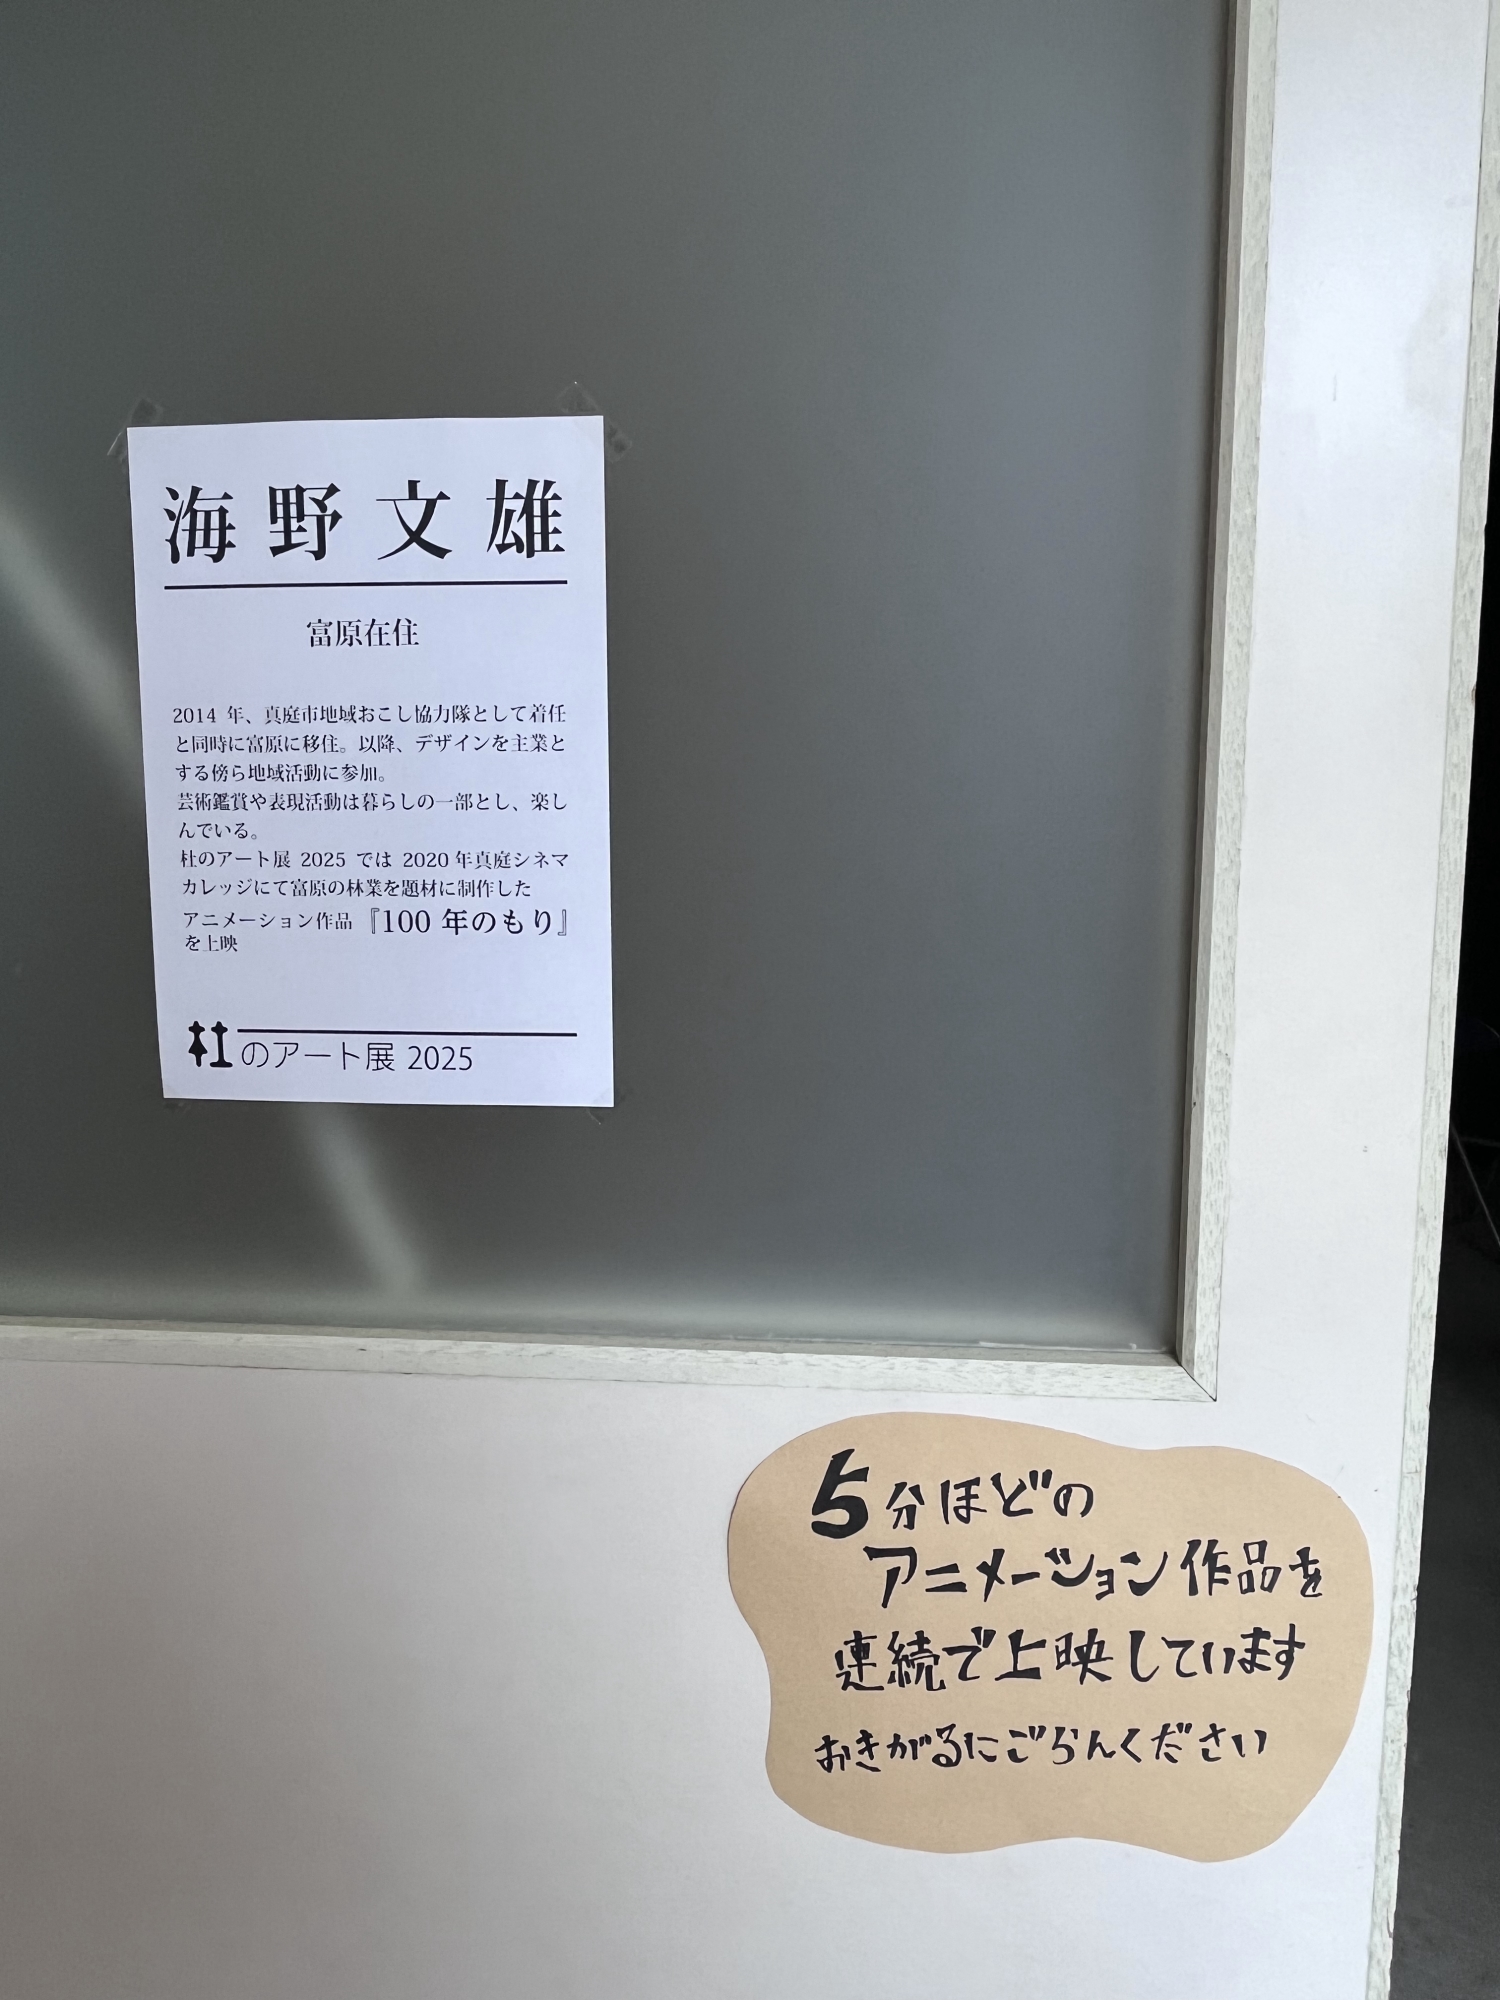 海野文雄
富原在住
2014 年、真庭市地域おこし協力隊として着任
と同時に富原に移住。以降、デザインを主業と
する傍ら地域活動に参加。
芸術鑑賞や表現活動は暮らしの一部とし、楽し
んでいる。
杜のアート展 2025 では 2020 年真庭シネマ
カレッジにて富原の林業を題材に制作した
アニメーション作品『100 年のもり』
を上映
杜のアート展 2025
5分ほどの
アニメーション作品を
連続で上映しています
おきがるにごらんください